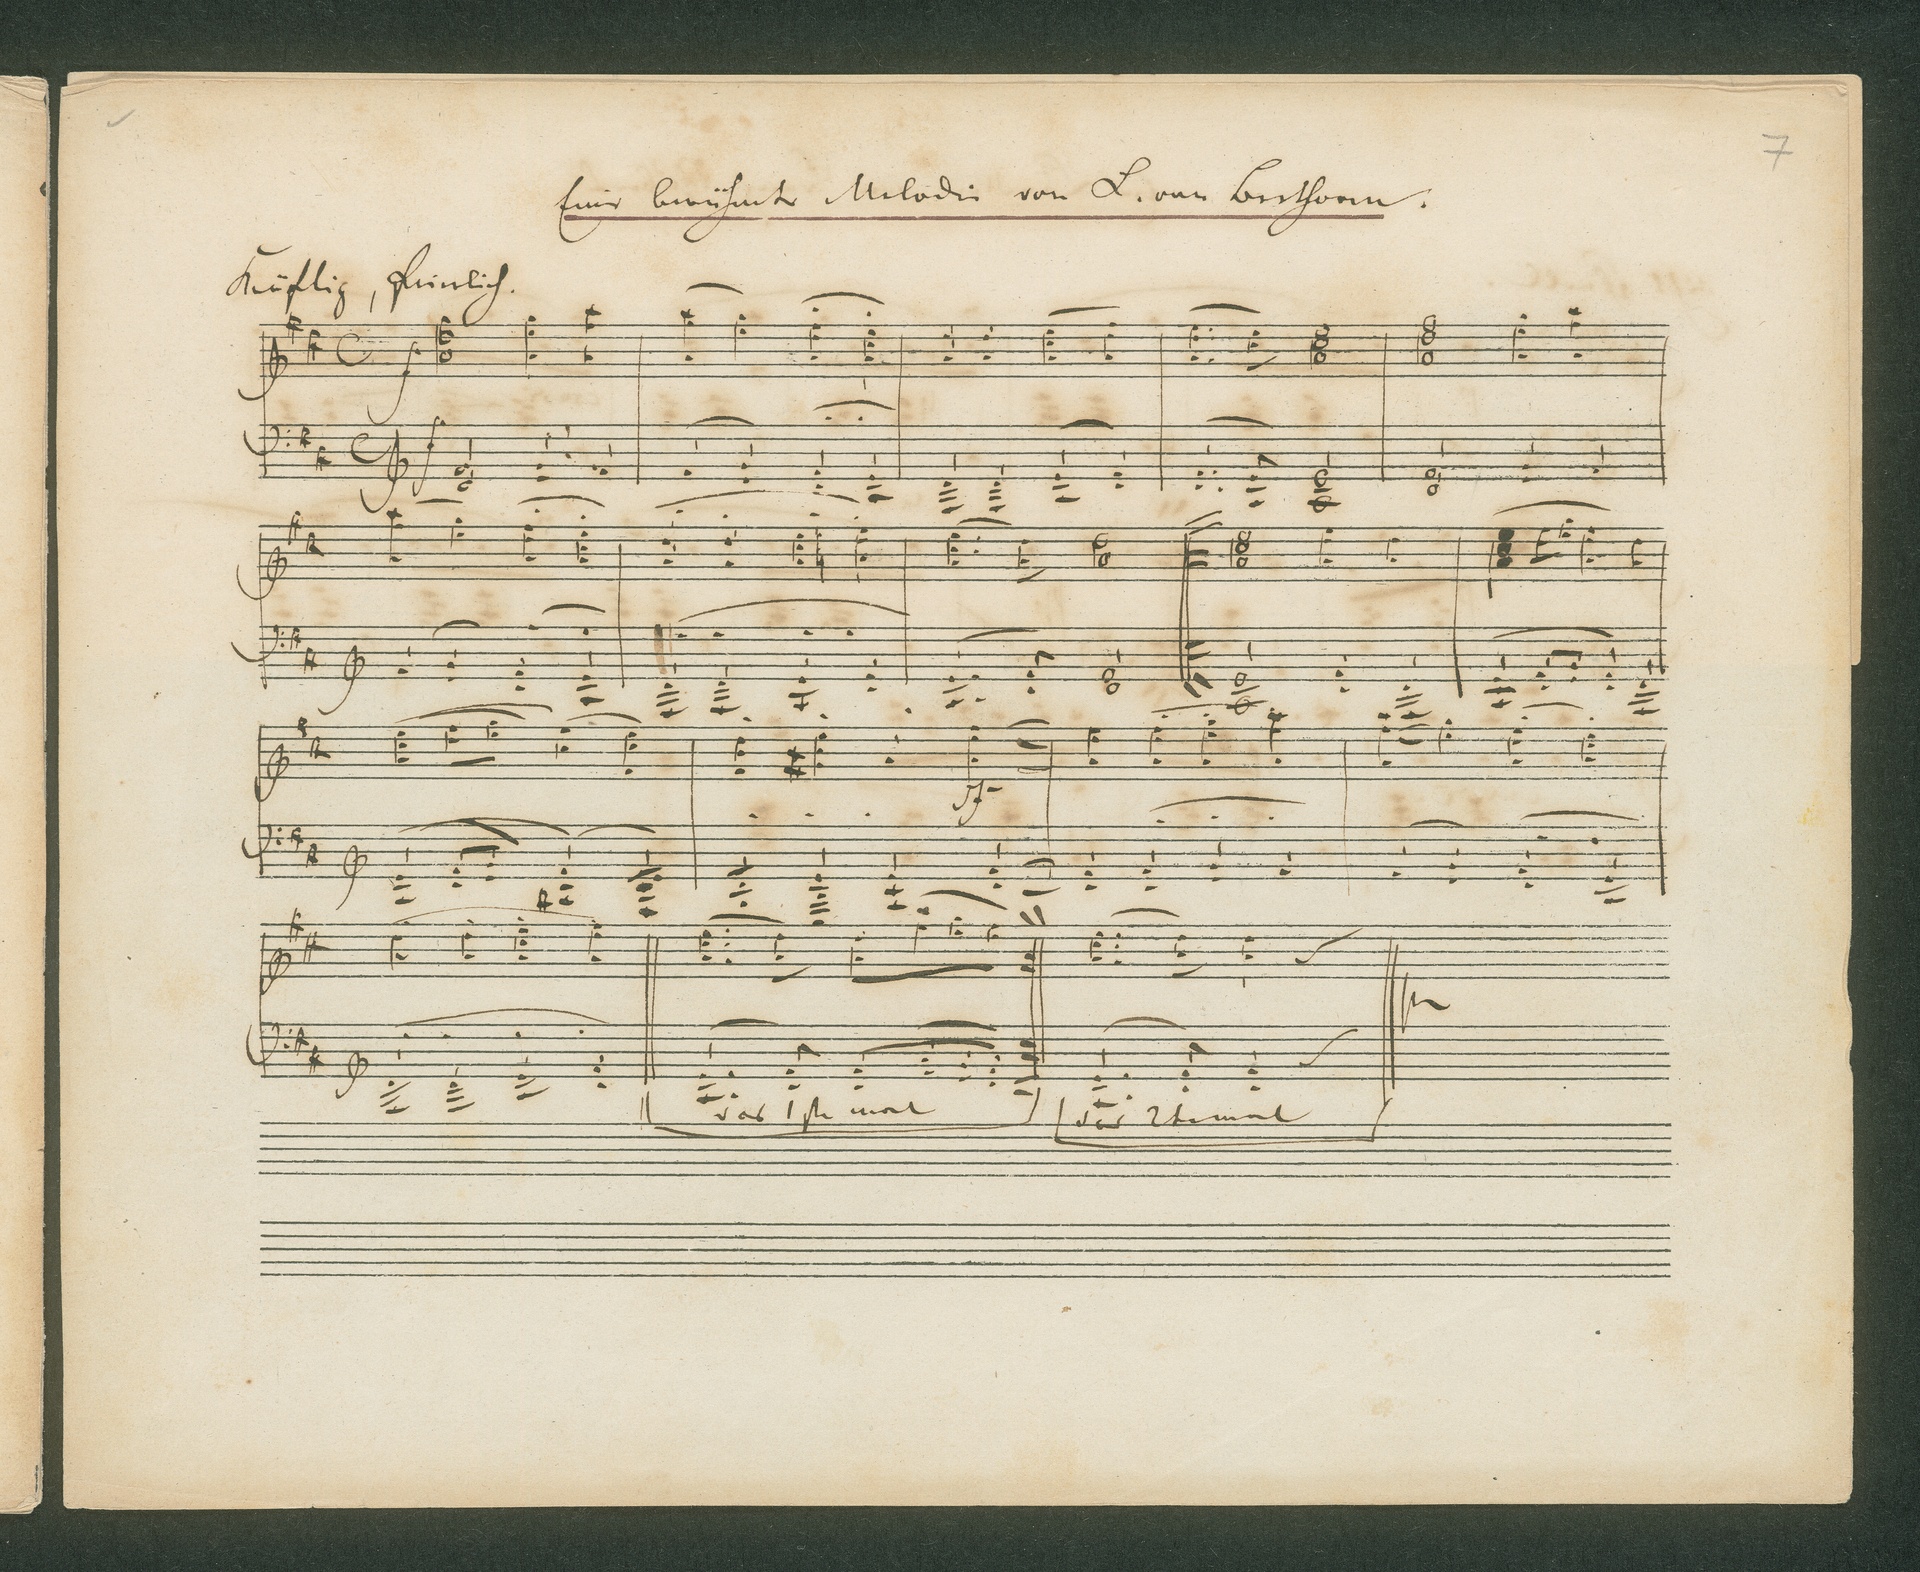 7
Eine berühmte Melodie von L. van Beethoven.
Kräftig, feierlich.
f
f
sf
das 1ste mal
das 2te mal